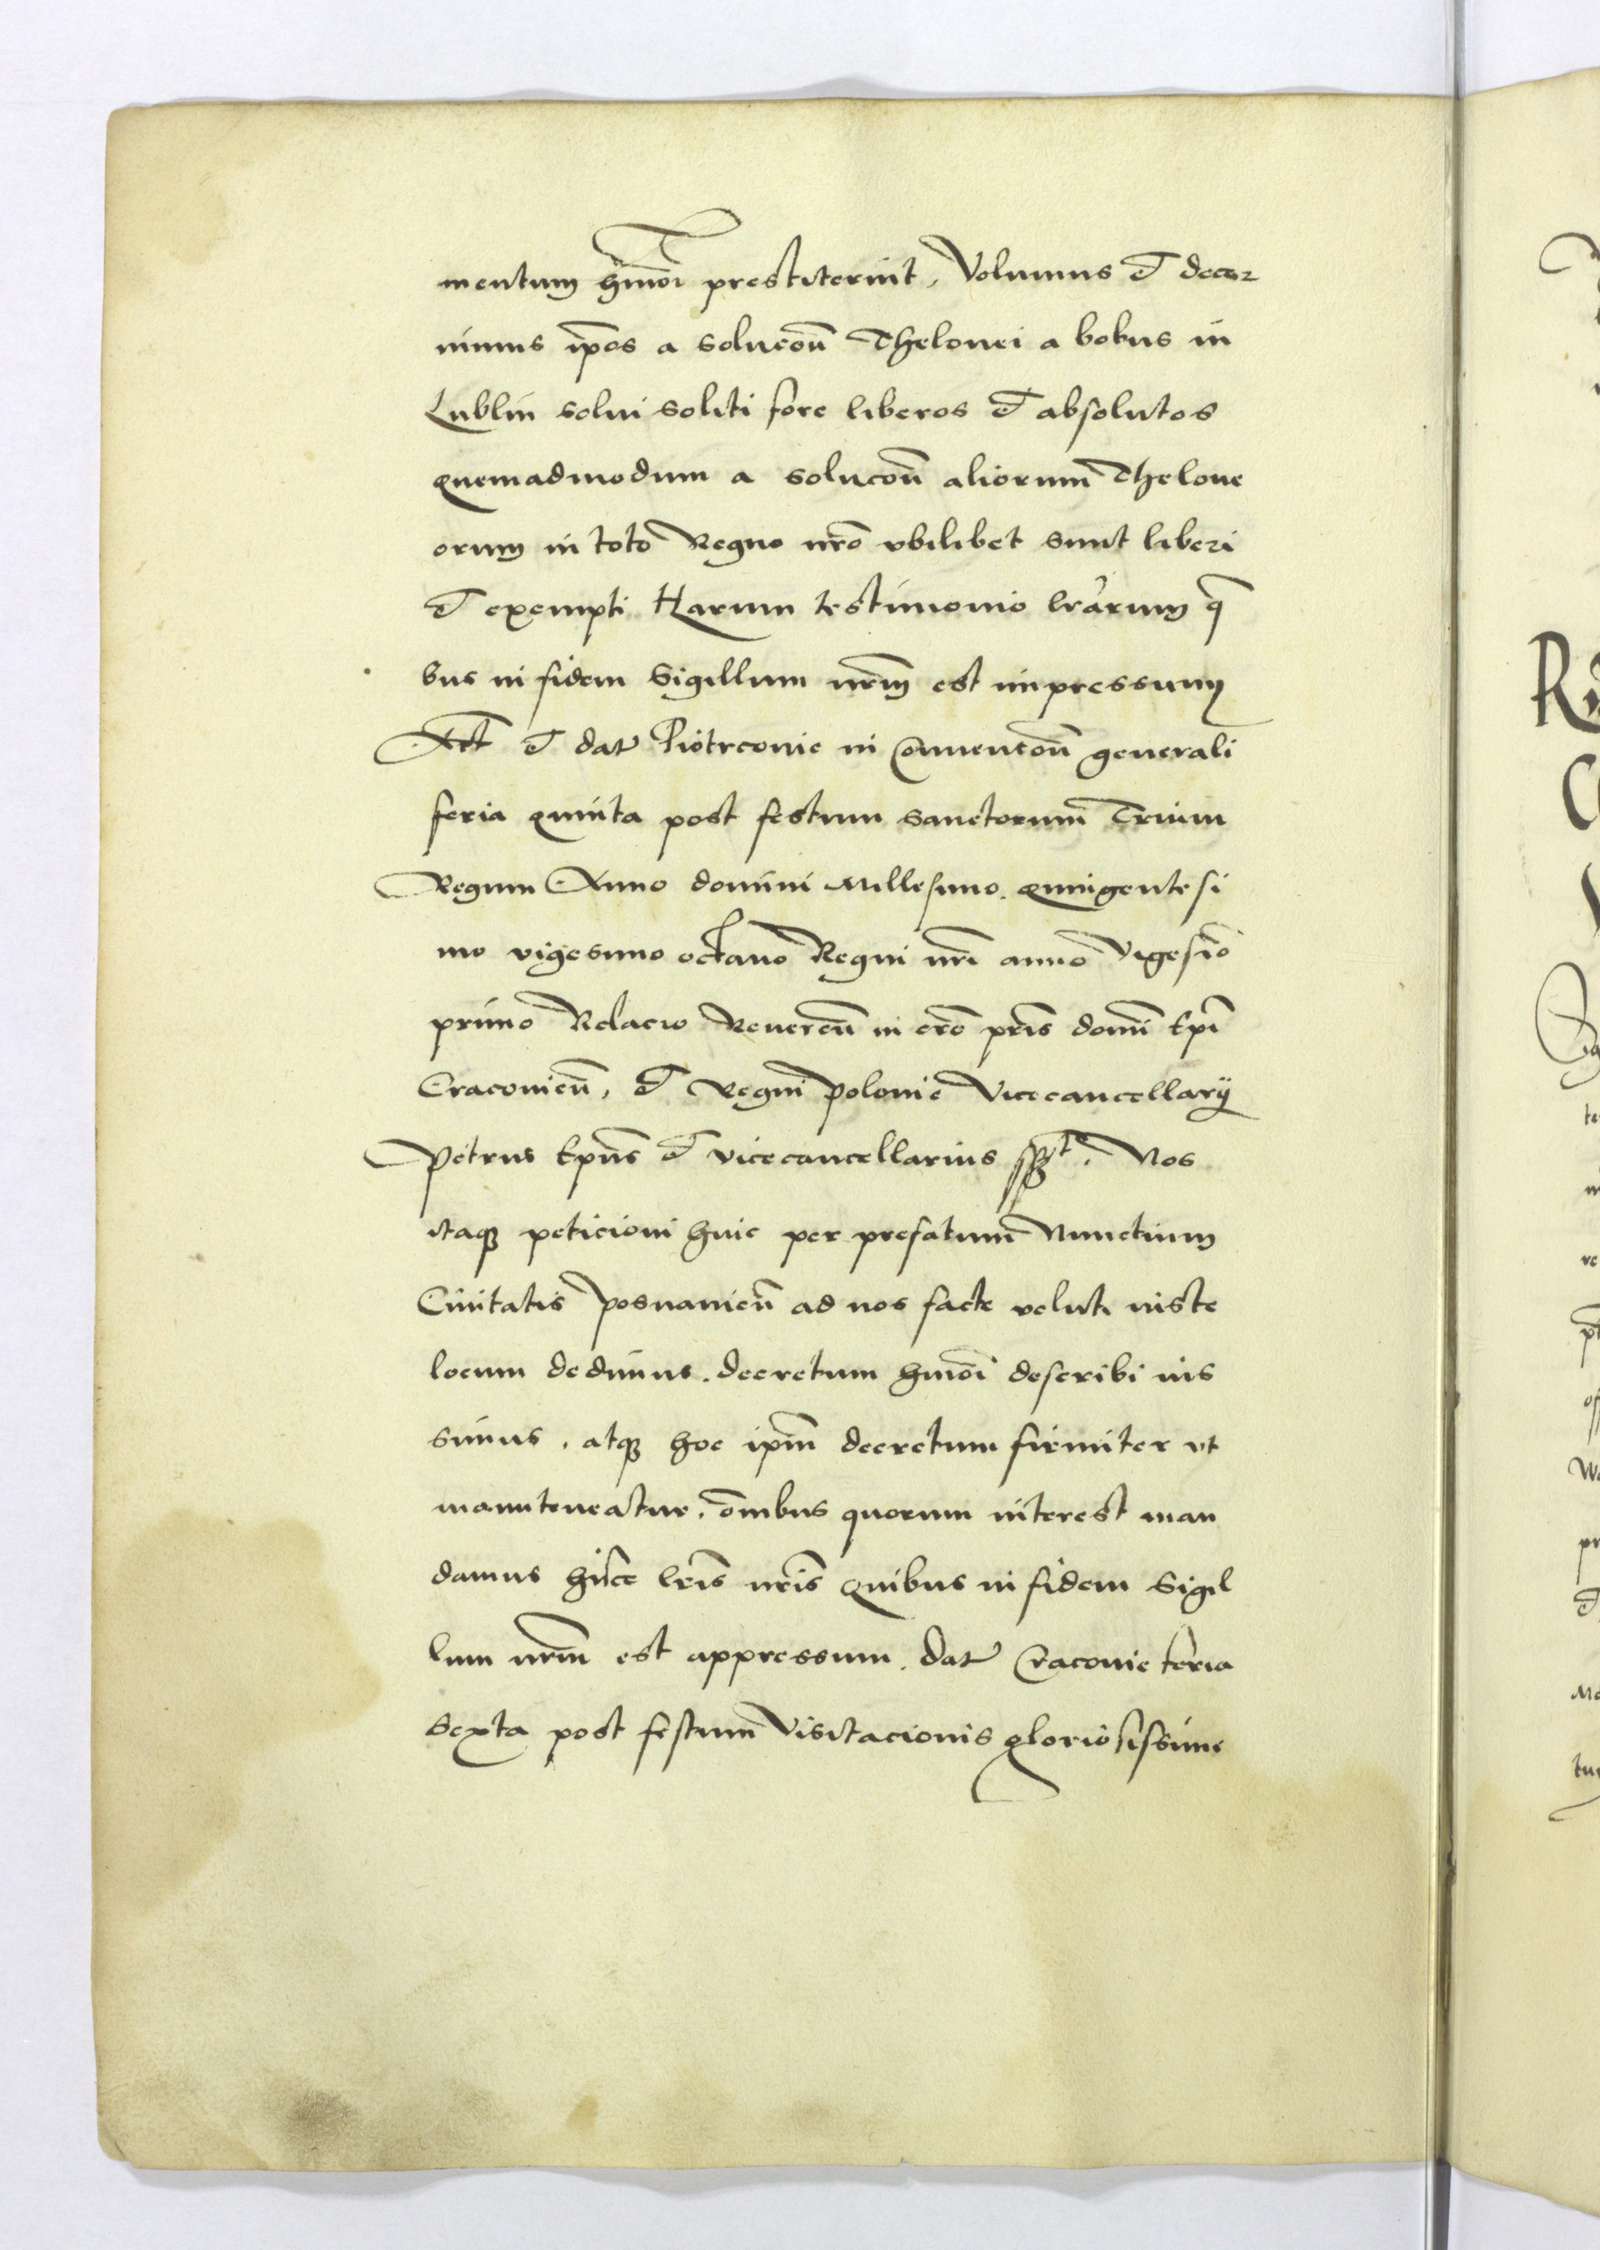 mentum hmōi prestiterint, Volumus et decer
nimus ip̄os a solucōn̄ Thelonei a bobus in
Lublin solui soliti fore liberos et absolutos
quemadmodum a solucōn̄ aliorum Thelone
orum in toto Regno nr̄o vbilibet sunt liberi
et exempti Harum testimonio lr̄arum q̄
bus in fidem Sigillum nr̄m est impressum
Act et dat Piotrconie in Conuencōn̄ generali
feria quinta post festum sanctorum Trium
Regum Anno domini Millesimo. quingentesi
mo vigesimo octauo Regni nr̄i anno vigesīo
primo Relacio Reueren̄ in cr̄o pr̄is domī Ep̄i
Cracouien̄, et Regni Polonie Vicecancellarij
Petrus Ep̄us et vicecancellarius sspt. Nos
itaq peticioni huic per prefatum Nunctium
Ciuitatis Posnanien̄ ad nos facte veluti iuste
locum dedimus. decretum hmōi describi ius
simus, atq hoc ip̄m decretum firmiter vt
manuteneatur, om̄ibus quorum interest man
damus hiīsce lr̄is nr̄is Quibus in fidem Sigil
lum nr̄m est appressum. dat Cracouie feria
Sexta post festum Visitacionis gloriosissime